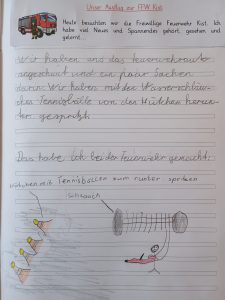 Unser Ausflug zur FFW Kist
Heute besuchten wir die Freiwillige Feuerwehr Kist. Ich
habe viel Neues und Spannendes gehört, gesehen und
gelernt.
Wir haben uns das Feuerwehrauto
angeschaut und ein paar Sachen
darin. Wir haben mit den Wasserschläu-
chen Tennisbälle von den Hütchen herun-
ter gespritzt.
Das habe ich bei der Feuerwehr gemacht:
Hütchen mit Tennisbällen zum runter spritzen
Schlauch